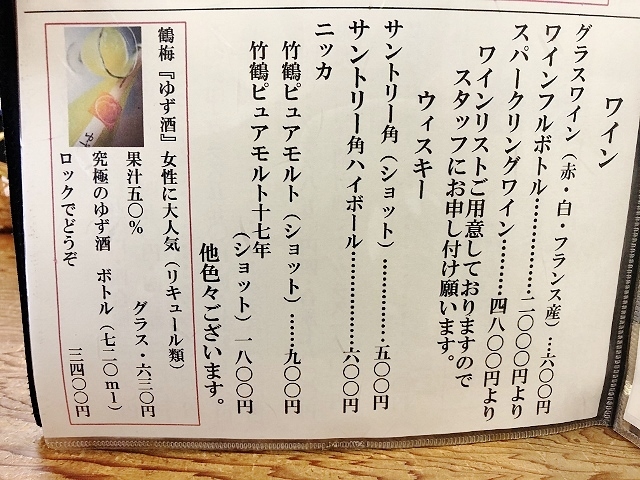 ワイン
グラスワイン（赤・白・フランス産）…六〇〇円
ワインフルボトル…………二〇〇〇円より
スパークリングワイン………四八〇〇円より
ワインリストご用意しておりますので
スタッフにお申し付け願います。
ウィスキー
サントリー角（ショット）…………五〇〇円
サントリー角ハイボール…………六〇〇円
ニッカ
竹鶴ピュアモルト（ショット）……九〇〇円
竹鶴ピュアモルト十七年
（ショット）一八〇〇円
他色々ございます。
鶴梅『ゆず酒』女性に大人気（リキュール類）
果汁五〇％　グラス・六三〇円
究極のゆず酒　ボトル（七二〇ml）
ロックでどうぞ　三四〇〇円